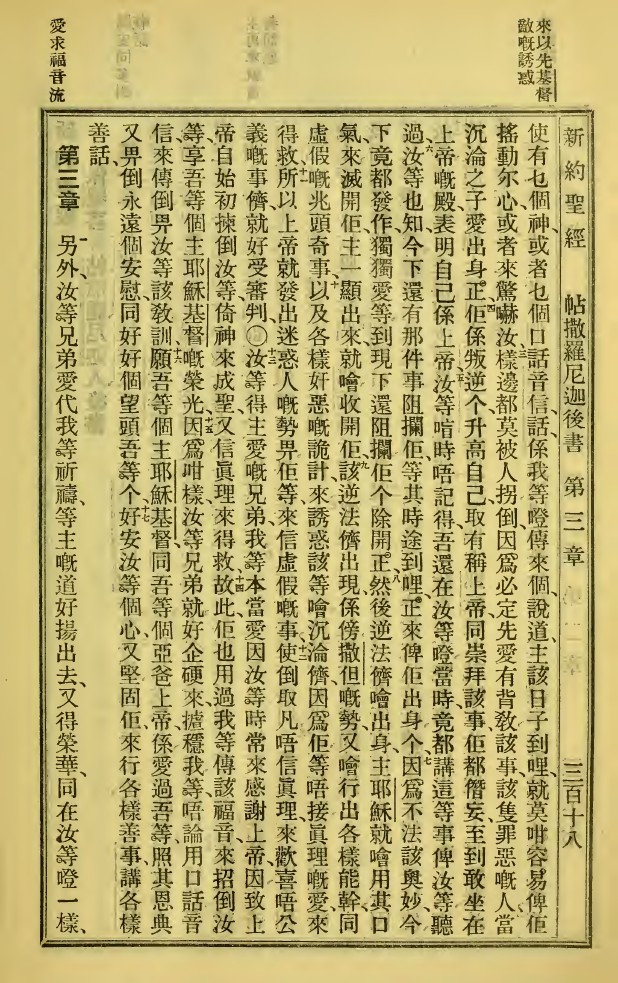 來以先基督
敵嘅誘惑
愛求福音流
新約聖經 帖撒羅尼迦後書 第三章 三百十八
使有乜個神、或者乜個口話音信、話係我等噔傳來個、說道、主該日子到哩、就莫咁容易俾佢
搖動尔心、或者來驚嚇、汝樣邊都莫被人拐倒、因爲必定先愛有背教該事、該隻罪惡嘅人、當
沉淪之子、愛出身正、佢係叛逆个升高自己、取有稱上帝、同崇拜該事、佢都僭妄至到敢坐在
上帝嘅殿、表明自己係上帝、汝等啱時唔記得、吾還在汝等噔當時、竟都講這等事俾汝等聽
過、汝等也知、今下還有那件事阻攔佢、等其時途到哩、正來俾佢出身个、因爲不法該奧妙、今
下竟都發作、獨獨愛等到現下還阻攔佢个除開正、然後逆法儕噲出身、主耶穌就噲用其口
氣來滅開佢、主一顯出來、就噲收開佢、該逆法儕出現、係傍撒但嘅勢、又噲行出各樣能幹、同
虛假嘅兆頭奇事、以及各樣奸惡嘅詭計、來誘惑該等噲沉淪儕、因爲佢等唔接眞理嘅愛、來
得救、所以上帝就發出迷惑人嘅勢畀佢等、來信虛假嘅事、使倒取凡唔信眞理、來歡喜唔公
義嘅事儕、就好受審判、〇汝等得主愛嘅兄弟、我等本當愛因汝等時常來感謝上帝、因致上
帝自始初揀倒汝等、倚神來成聖、又信眞理來得救、故此佢也用過我等傳該福音、來招倒汝
等、享吾等個主耶穌基督嘅榮光、因爲咁樣、汝等兄弟就好企硬來、摣穩我等唔論用口話音
信來傳倒畀汝等該教訓、願吾等個主耶穌基督、同吾等個亞爸上帝、係愛過吾等、照其恩典
又畀倒永遠個安慰、同好好個望頭吾等个、好安汝等個心、又堅固佢、來行各樣善事、講各樣
善話、
第三章 另外、汝等兄弟愛代我等祈禱、等主嘅道好揚出去、又得榮華、同在汝等噔一樣、